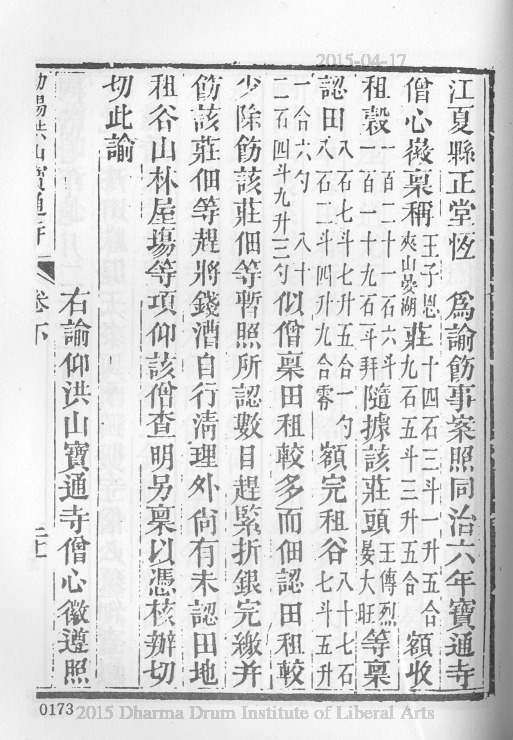 2015-04-17
江夏縣正堂恆　為諭飭事案照同治六年寶通寺
僧心徽稟稱王子恩夾山晏湖莊十四石三斗一升五合九石五斗三升五合額收
租穀一百二十一石六斗一百一十九石斗拜隨據該莊頭王傳烈晏大旺等稟
認田八石七斗七升五合一勺八石一斗四升九合零　額完租谷八十七石七斗五升
一合六勺　八十二石四斗九升三勺似僧稟田租較多而佃認田租較
少除飭該莊佃等暫照所認數目趕緊折銀完繳并
飭該莊佃等趕將錢漕自行清理外尚有未認田地
租谷山林屋塲等項仰該僧查明另稟以憑核辦切
切此諭
右諭仰洪山寶通寺僧心徽遵照
山寶通寺　卷下
0173 2015 Dharma Drum Institute of Liberal Arts